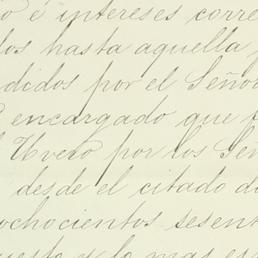 o é intereses corre
los hasta aquella
didos por el Señor
encargado que f
Uveto por los Señ
desde el citado di
ochocientos sesent
uesto y lo mas es